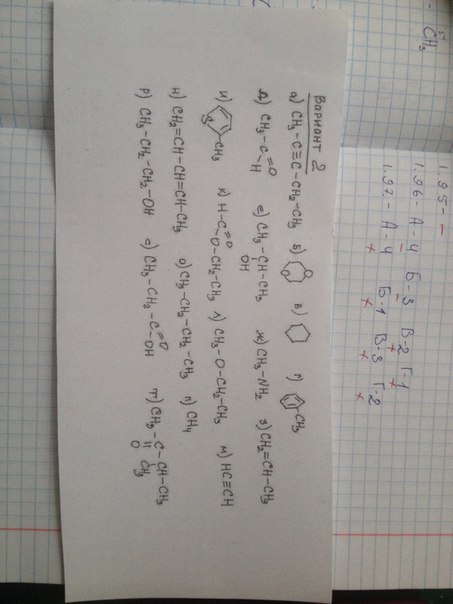 Вариант 2
а) CH₃-C≡C-CH₂-CH₃ б) O в) г) CH₃
д) CH₃-C=O H е) CH₃-CH-CH₃ OH ж) CH₃-NH₂ з) CH₂=CH-CH₃
и) CH₃ к) H-C=O O-CH₂CH₃ л) CH₃-O-CH₂-CH₃ м) HC≡CH
н) CH₂=CH-CH=CH-CH₃ о) CH₃-CH₂-CH₂-CH₃ п) CH₄
р) CH₃-CH₂-CH₂-OH с) CH₃-CH₂-C=O OH т) CH₃-C-CH-CH₃ O CH₃
1.95 - –
1.96 - А-4 Б-3 В-2 Г-1
1.97 - А-4 Б-1 В-3 Г-2
CH₃